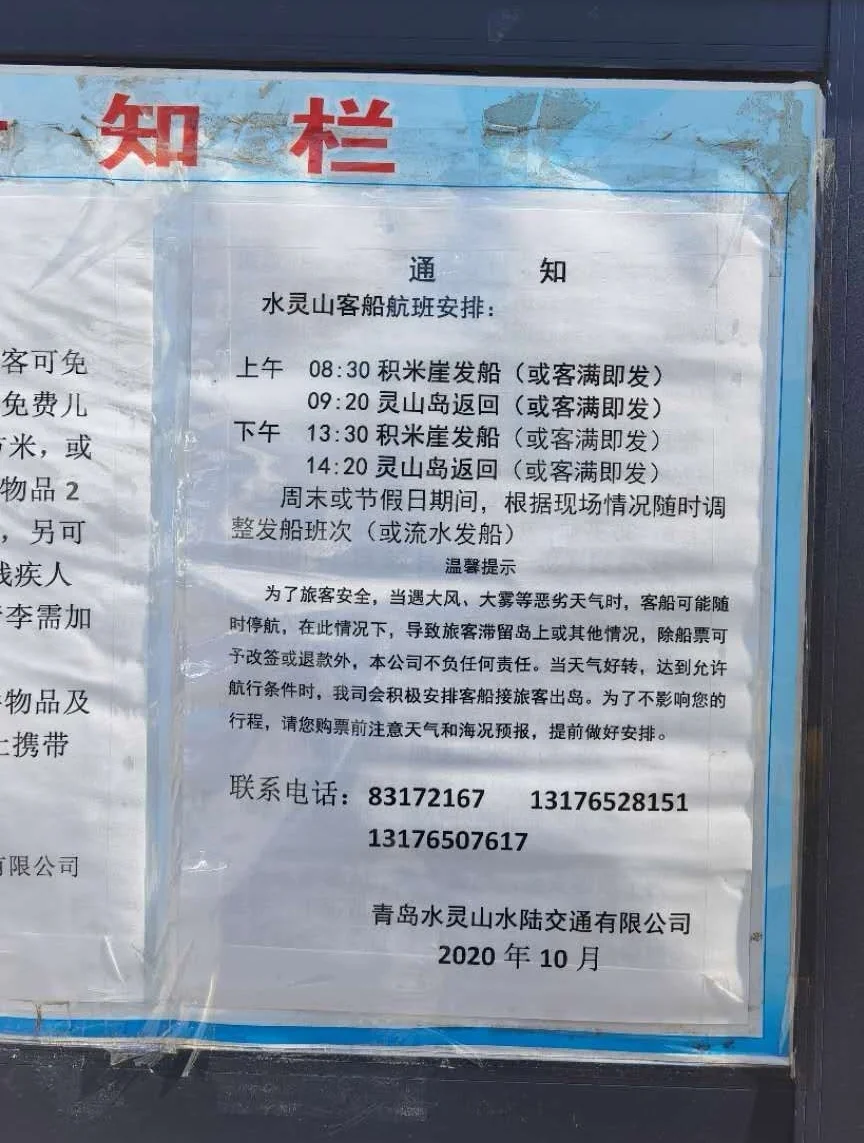 知栏
客可免
免费儿
方米，或
物品2
，另可
残疾人
李需加
物品及
上携带
有限公司
通 知
水灵山客船航班安排：
上午 08:30 积米崖发船（或客满即发）
09:20 灵山岛返回（或客满即发）
下午 13:30 积米崖发船（或客满即发）
14:20 灵山岛返回（或客满即发）
周末或节假日期间，根据现场情况随时调
整发船班次（或流水发船）
温馨提示
为了旅客安全，当遇大风、大雾等恶劣天气时，客船可能随
时停航，在此情况下，导致旅客滞留岛上或其他情况，除船票可
予改签或退款外，本公司不负任何责任。当天气好转，达到允许
航行条件时，我司会积极安排客船接旅客出岛。为了不影响您的
行程，请您购票前注意天气和海况预报，提前做好安排。
联系电话：83172167 13176528151
13176507617
青岛水灵山水陆交通有限公司
2020 年 10 月